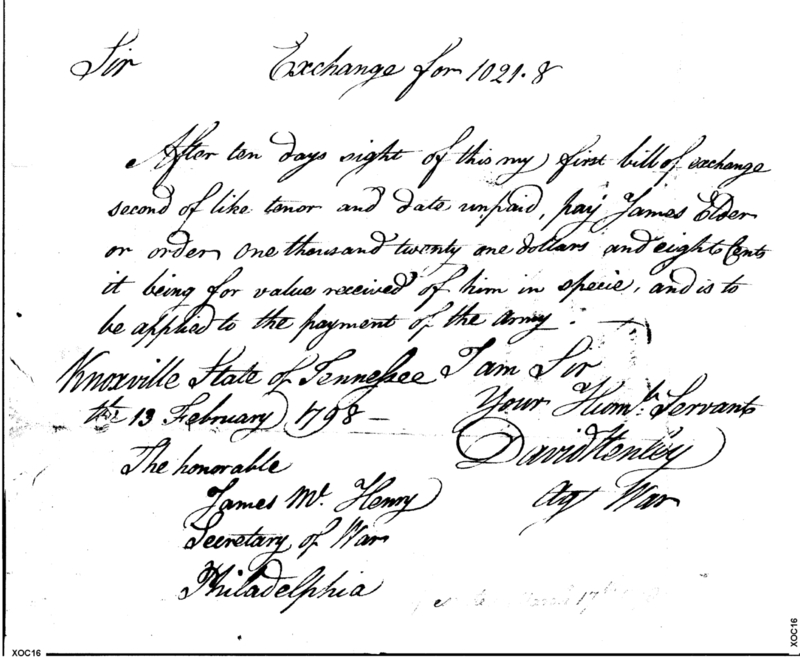 Sir Exchange for 1021.8
After ten days sight of this my first bill of exchange
second of like tenor and date unpaid, pay James Elder
or order one thousand twenty one dollars and eight Cents
it being for value received of him in specie, and is to
be applied to the payment of the army. —
Knoxville State of Tennessee I am Sir
13 February 1798 — Your Humb. Servant
The honorable David Henley
James Mc. Henry Ag War
Secretary of War
Philadelphia
XOC16
XOC16